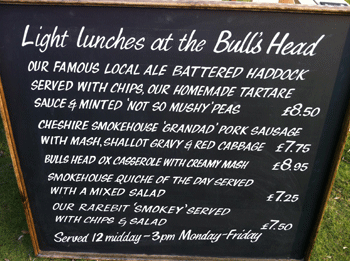 Light lunches at the Bull's Head
OUR FAMOUS LOCAL ALE BATTERED HADDOCK
SERVED WITH CHIPS, OUR HOMEMADE TARTARE
SAUCE & MINTED 'NOT SO MUSHY' PEAS £8.50
CHESHIRE SMOKEHOUSE 'GRANDAD' PORK SAUSAGE
WITH MASH, SHALLOT GRAVY & RED CABBAGE £7.75
BULLS HEAD OX CASSEROLE WITH CREAMY MASH £8.95
SMOKEHOUSE QUICHE OF THE DAY SERVED
WITH A MIXED SALAD £7.25
OUR RAREBIT 'SMOKEY' SERVED
WITH CHIPS & SALAD £7.50
Served 12 midday - 3pm Monday-Friday